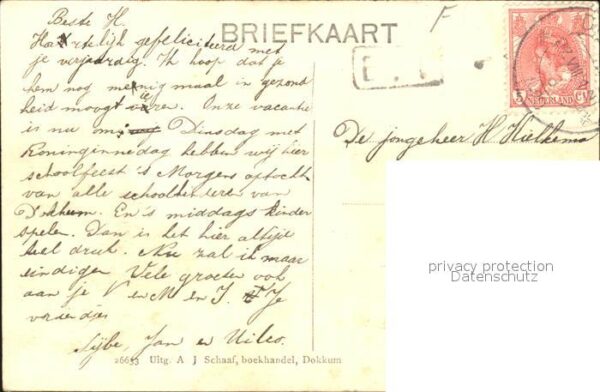 BRIEFKAART
Beste H.
Hartelijk gefeliciteerd met
je verjaardig. Ik hoop dat je
hem nog menig maal in gezond
heid moogt vieren. Onze vacantie
is nu om. Dinsdag met
Koninginnedag hebben wij hier
schoolfeest 's Morgens optocht
van alle schoolkinderen van
Dokkum. En 's middags kinder
spelen. Dan is het hier altijd
heel druk. Nu zal ik maar
eindigen Vele groeten ook
aan je V en M en J. Je
Jan en
26653 Uitg. A J Schaaf, boekhandel, Dokkum
5 NEDERLAND CT
De jongeheer H Hielkema
privacy protection
Datenschutz